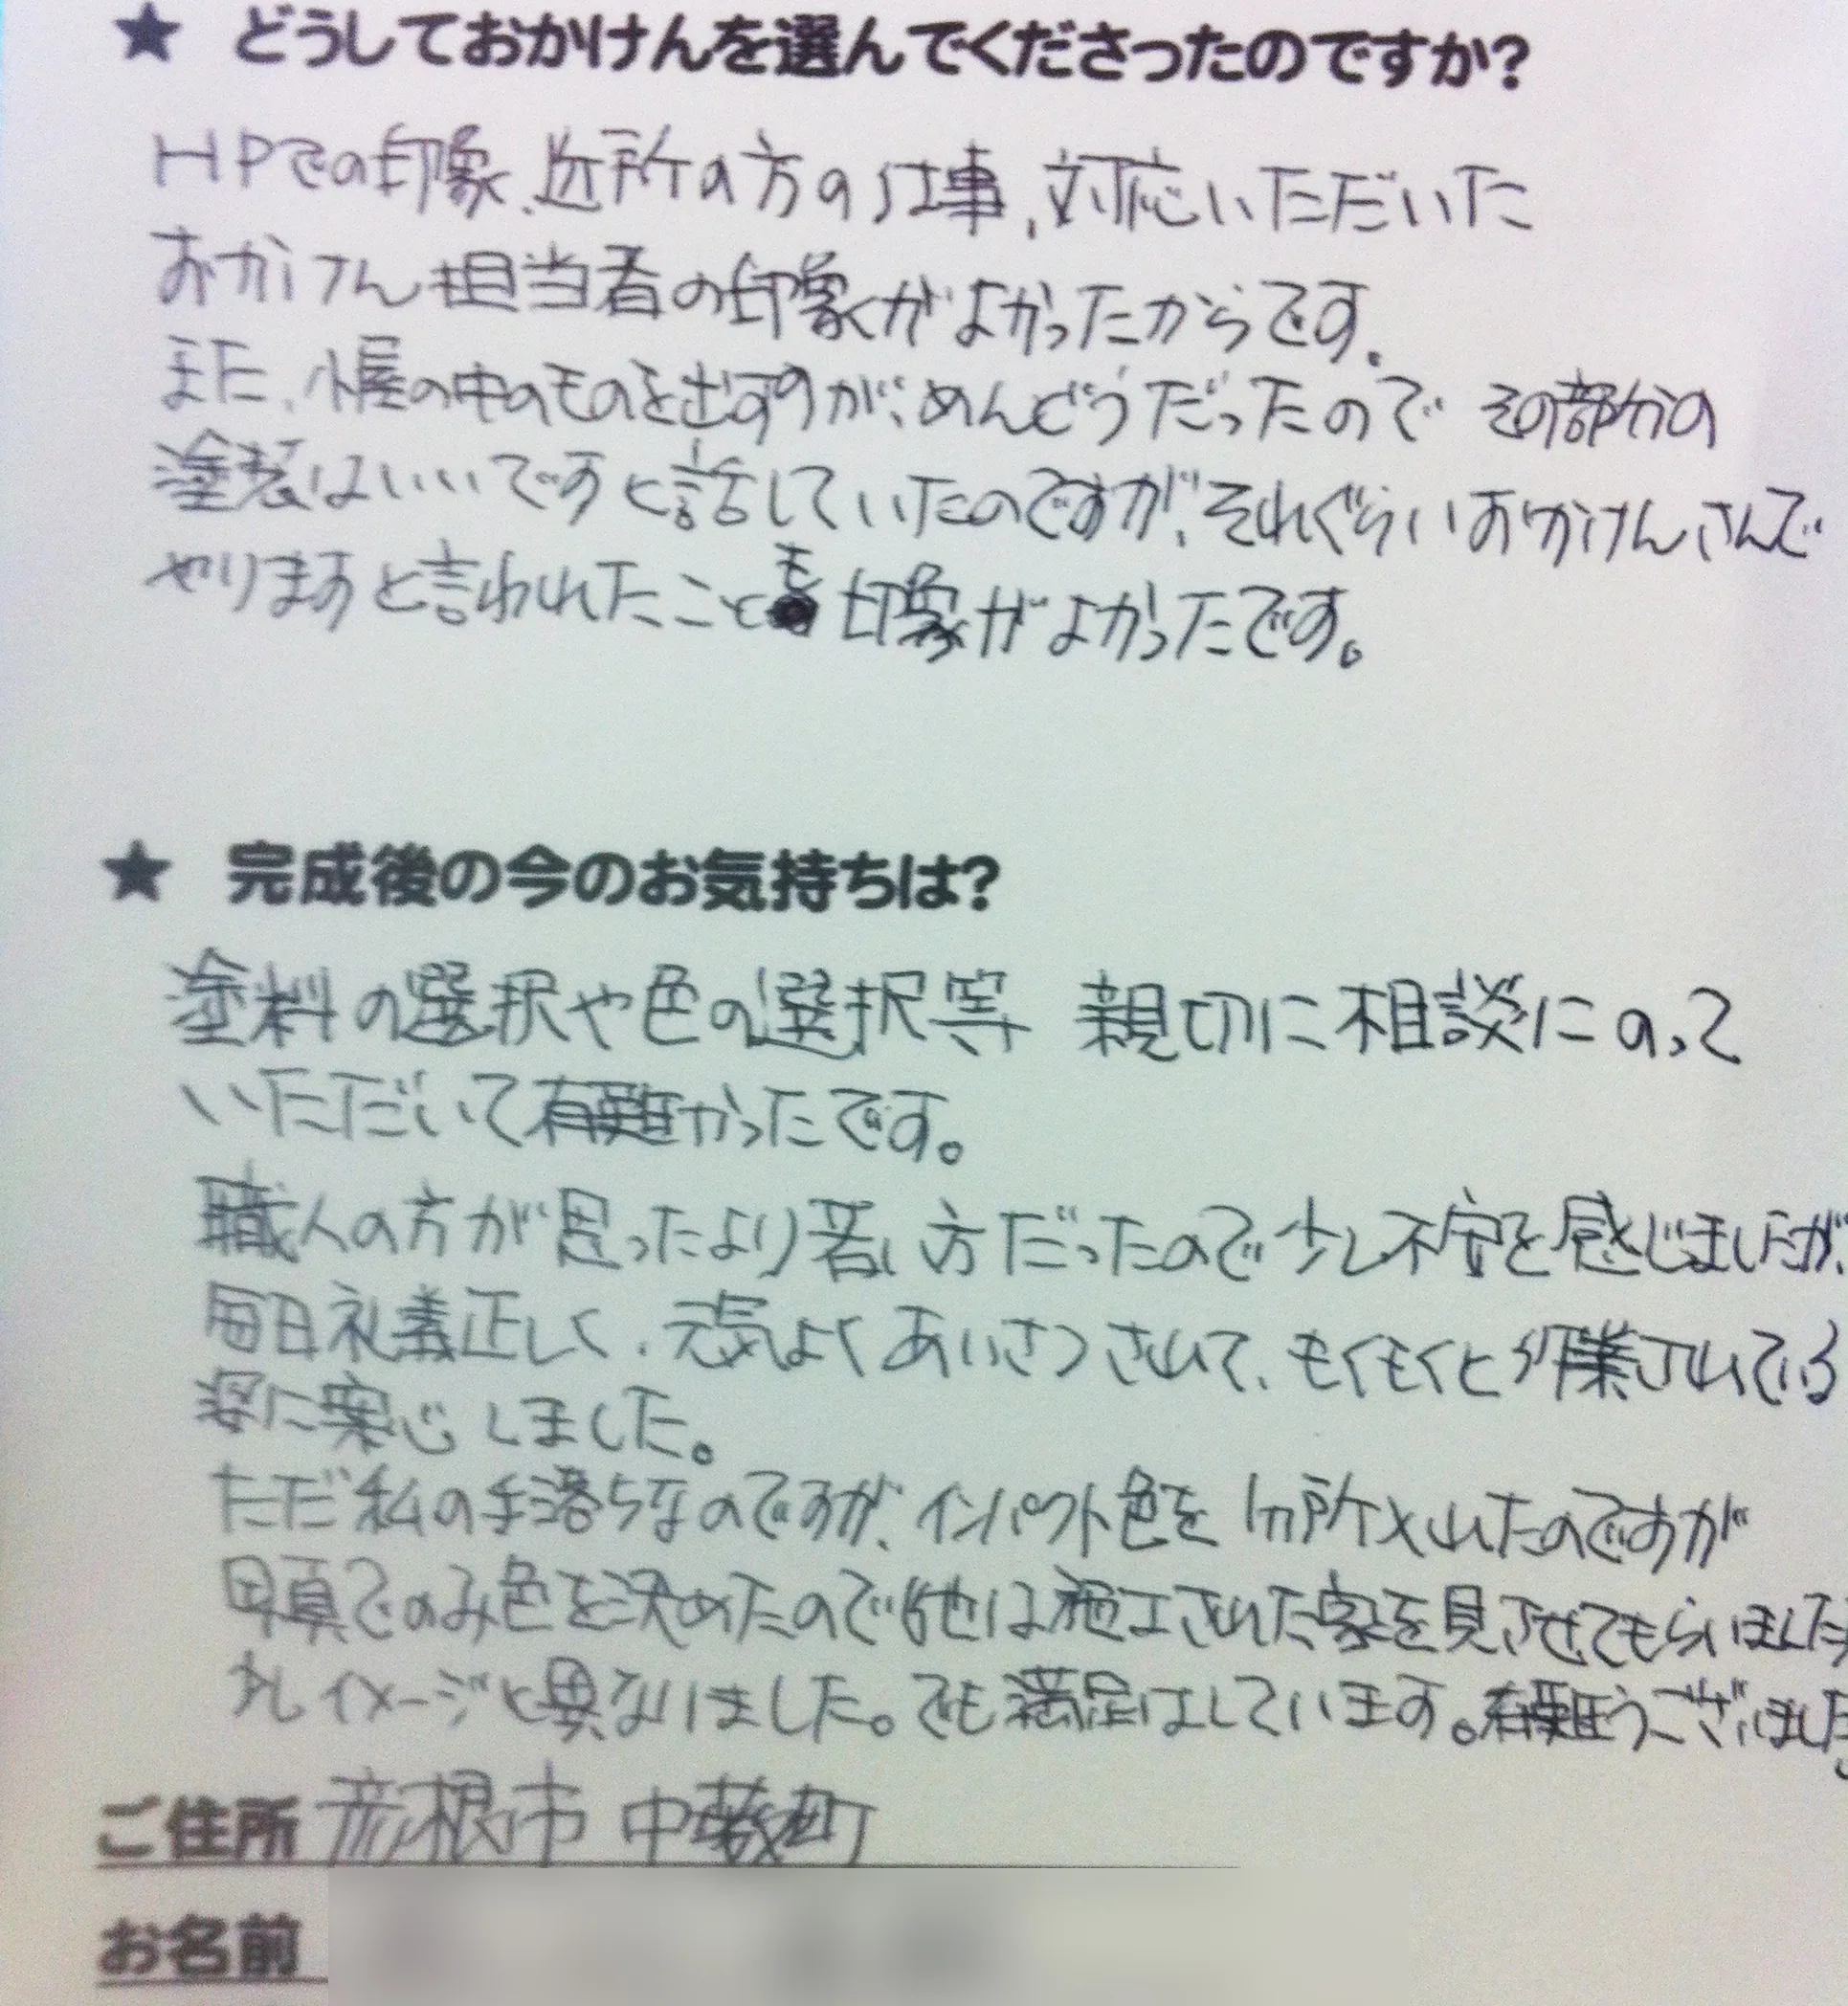 ★ どうしておかけんを選んでくださったのですか?
HPでの印象、近所の方の仕事、対応いただいた
おかけん担当者の印象がよかったからです。
また、小屋の中のものを出すのが、めんどうだったので その部分の
塗装はいいですと話していたのですが、それぐらいおかけんさんで
やりますと言われたことも印象がよかったです。
★ 完成後の今のお気持ちは?
塗料の選択や色の選択等 親切に相談にのって
いただいて有難かったです。
職人の方が思ったより若い方だったので少し不安を感じましたが、
毎日礼義正しく、元気よくあいさつされて、もくもくと作業されている
姿に安心しました。
ただ私の手落ちなのですが、インパクト色を 1ヵ所入れたのですが
写真でのみ色を決めたので(他は施工された家を見させてもらいました)
少しイメージと異なりました。でも満足はしています。有難うございました
ご住所 彦根市 中薮町
お名前